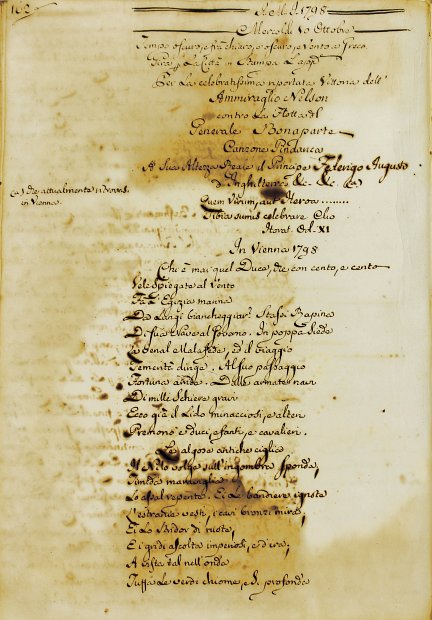 162
A. M. D. 1798
Mercoldì 10 Ottobre
Tempo oscuro, e frà chiaro, e oscuro, e Vento a Greco.
Gira p La Città in Stampa L'app.
Per La celebratissima riportata Vittoria dell'
Ammiraglio Nelson
contro La Flotta del
Generale Bonaparte
Canzone Pindarica
A Sua Altezza Reale il Principe Federigo Augusto
d'Inghilterra &c. &c. (a)
(a) Che attualmente si trova
in Vienna.
Quem Virum, aut Heroa ........
Tibia sumis celebrare Clio
Horat. Od. XI
In Vienna 1798
Chi è mai quel Duce, che con cento, e cento
Vele spiegate al Vento
Fà L' Egizia marina
Da Lungi biancheggiar? Stassi Rapina
Di sua Nave al Governo. In poppa siede
La penal Malafede, ed il viaggio
Temerità dirige. Al suo passaggio
Fortuna arride. Dalle armate navi
Di mille Schiere gravi
Ecco già il Lido minacciosi, e alteri
Premono e duci, e fanti, e cavalieri.
Le algose antiche ciglia
Il Nilo volge sull' ingombra sponda,
Timida maraviglia
Lo assal repente. Ei Le bandiere ignote
L'estranie vesti, i cavi bronzi mira,
Ei Lo Stridor di ruote,
E i gridi ascolta imperiosi, e d'ira;
A vista tal nell'onda
Tuffa Le verdi chiome, e profonda